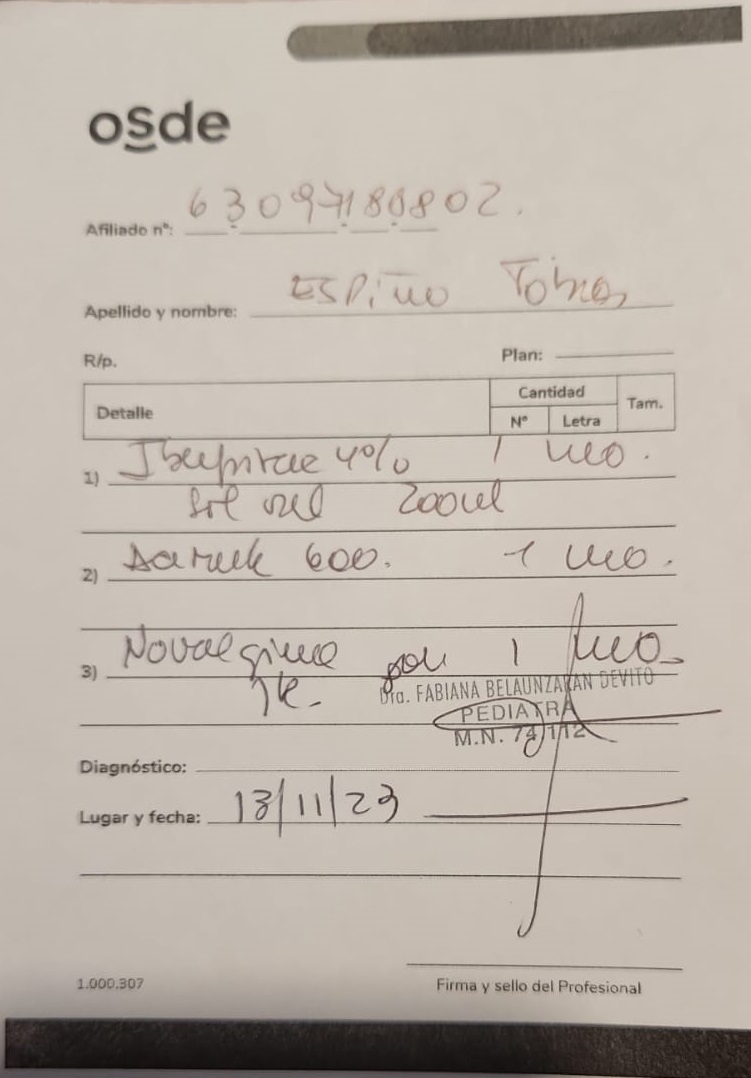 osde
Afiliado nº: 63097188802.
Apellido y nombre: Espiño Tobias
R/p. Plan:
Detalle Cantidad Tam.
Nº Letra
1) Ibupirac 4% 1 uno.
Sol 200ml
2) 600. 1 uno.
3) Novalgina gou 1 uno
Dra. FABIANA BELAUNZARAN DEVITO
PEDIATRA
M.N. 74112
Diagnóstico:
Lugar y fecha: 13/11/23
1.000.307
Firma y sello del Profesional